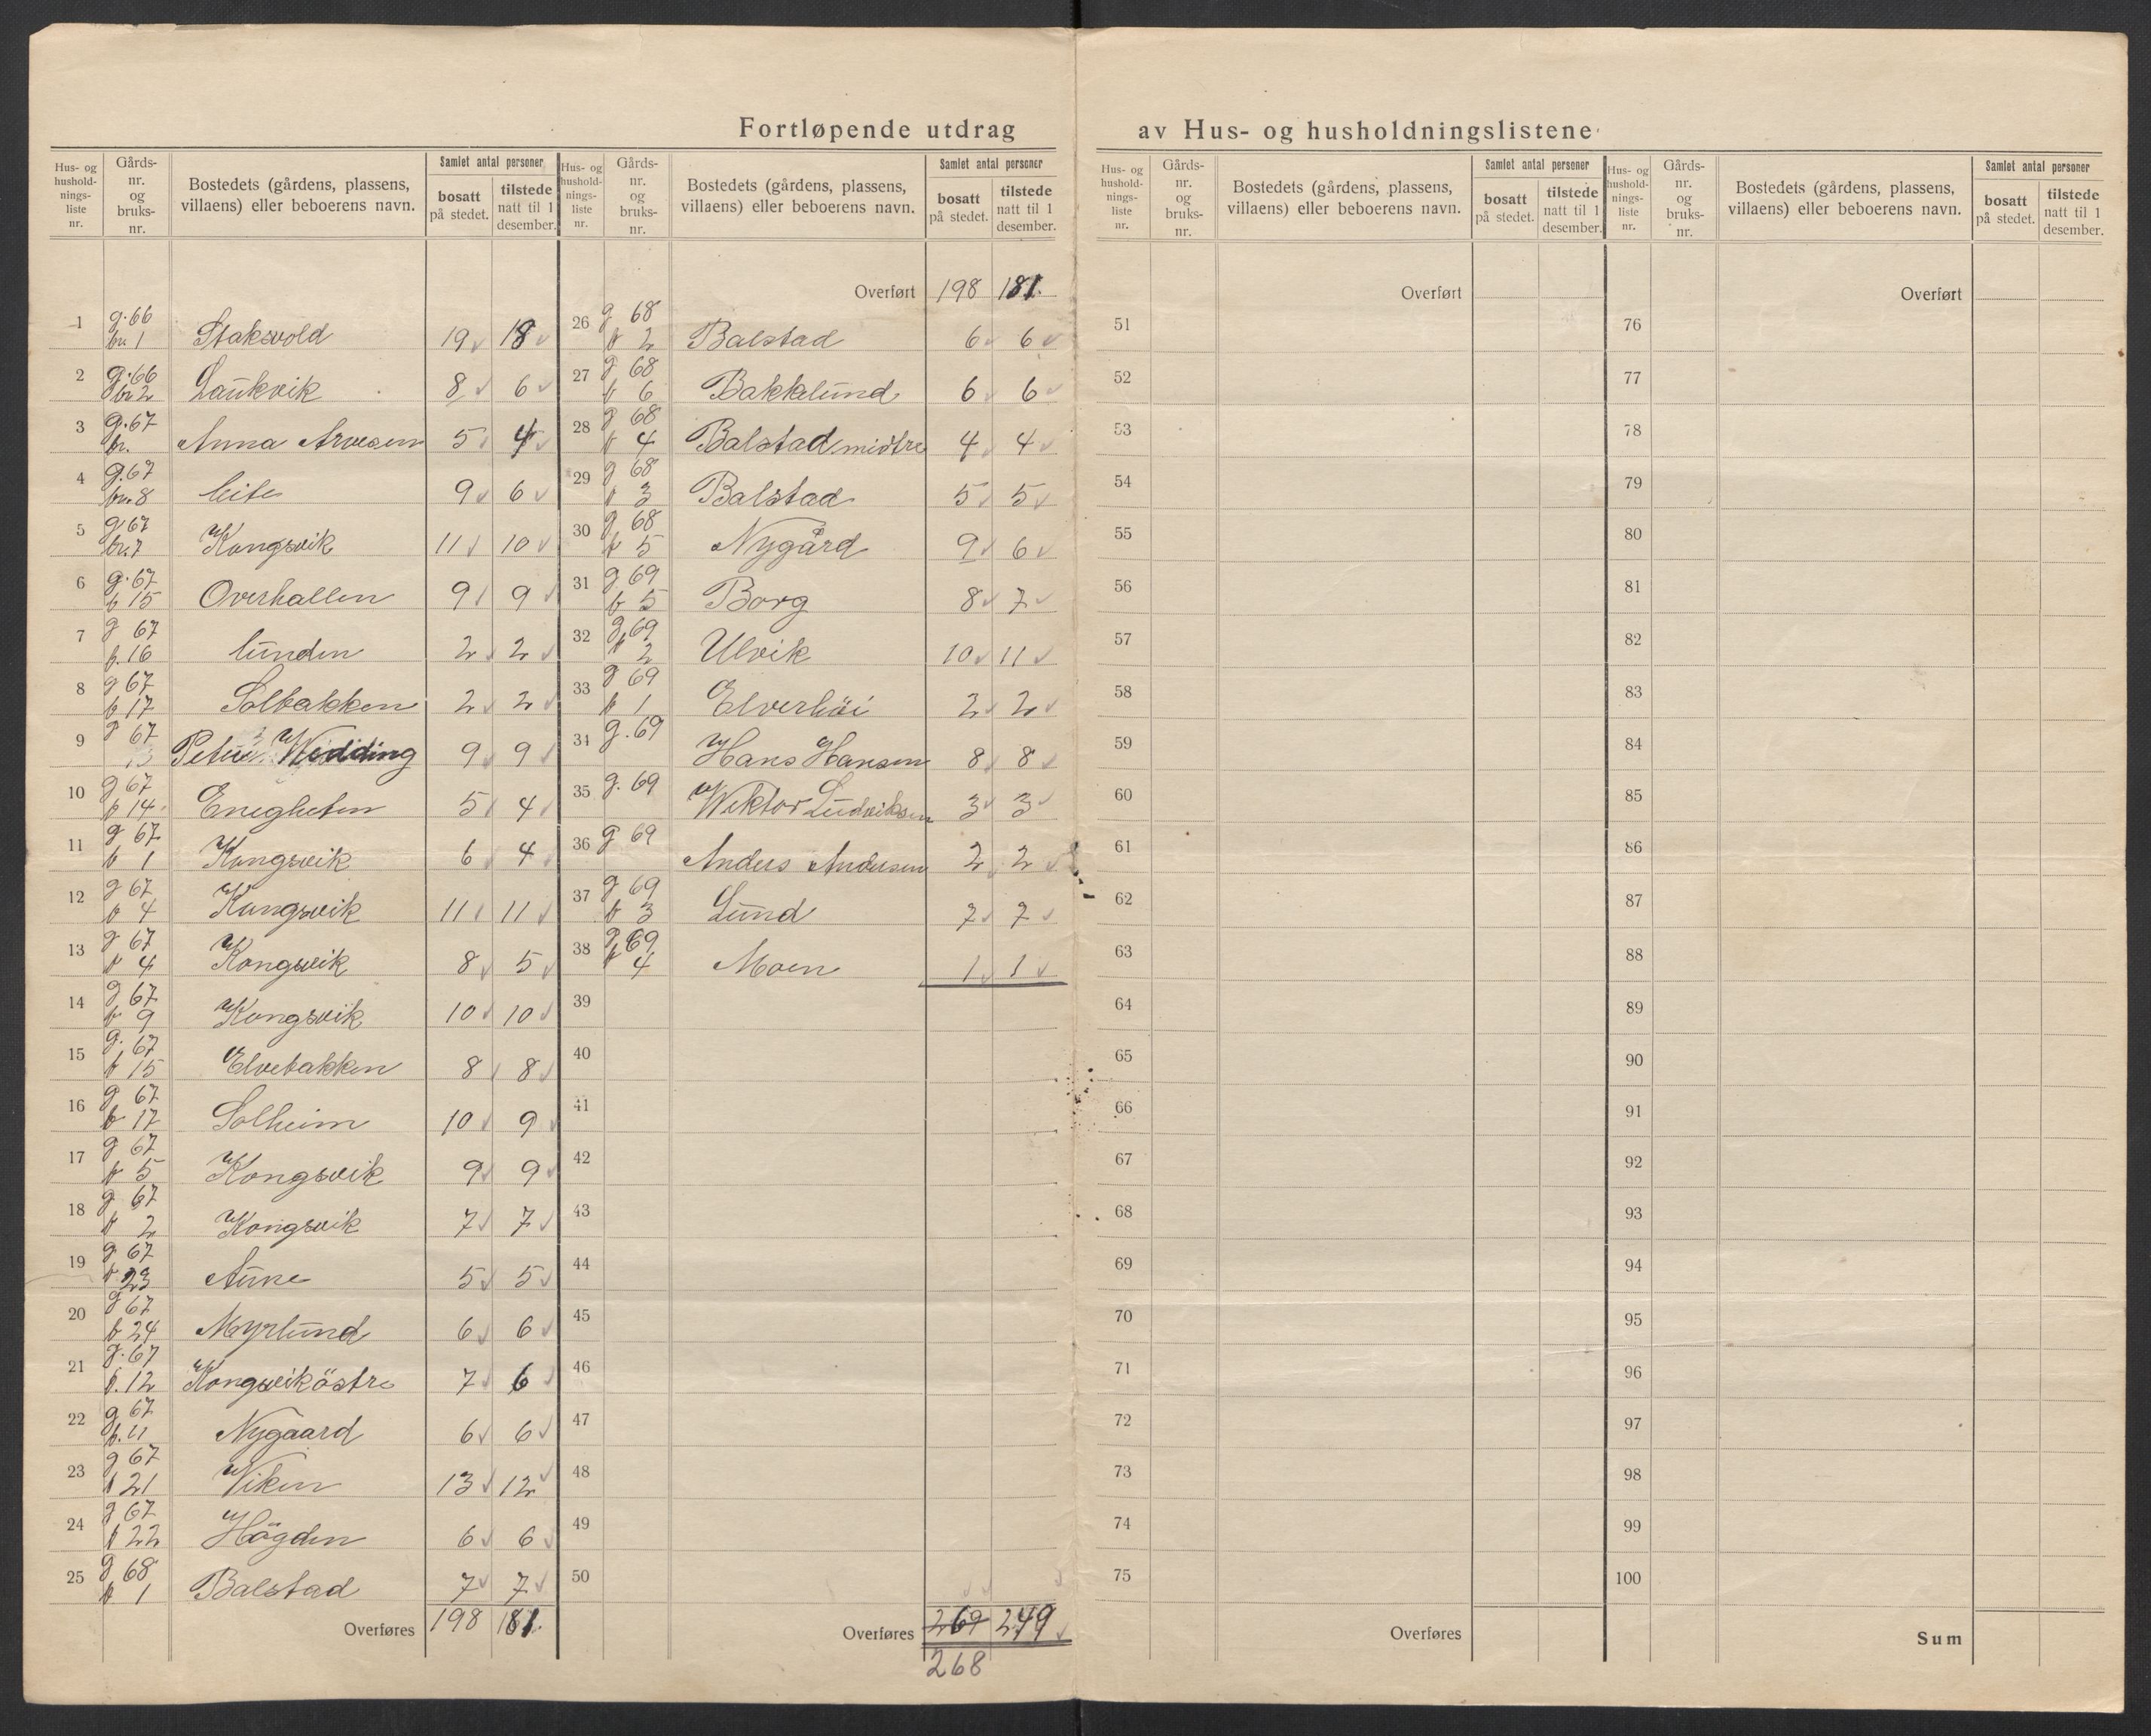 Fortløpende utdrag av Hus- og husholdningslistene
Hus- og husholdnings-liste nr. | Gårds-nr. og bruks-nr. | Bostedets (gårdens, plassens, villaens) eller beboerens navn. | Samlet antal personer | bosatt på stedet. | tilstede natt til 1 desember.
1 g. 66 br. 1 Staksvold 19 18
2 g. 66 br 2 Laukvik 8 6
3 g. 67 br. Anna Arvesen 5 4
4 g. 67 br. 8 6
5 g 67 br. 7 Kongsvik 11 10
6 g. 67 b 15 Overhallen 9 9
7 g 67 b. 16 lunden 2 2
8 g 67 b 17 Solbakken 2 2
9 g 67 Wedding 9 9
10 g 67 b 14 Enegheten 5 4
11 g 67 b 1 Kongsvik 6 4
12 g 67 b 4 Kongsvik 11 11
13 g 67 b 4 Kongsvik 8 5
14 g 67 b 9 Kongsvik 10 10
15 g. 67 b 15 Elvebakken 8 8
16 g 67 b 17 Solheim 10 9
17 g 67 b 5 Kongsvik 9 9
18 g 67 b 2 Kongsvik 7 7
19 g 67 b 23 Aune 5 5
20 g 67 b 24 Myrlund 6 6
21 g. 67 b. 12 Kongsvik östre 7 6
22 g 67 b. 11 Nygaard 6 6
23 g 67 b 21 Viken 13 12
24 g 67 b 22 Högden 6 6
25 g 68 b 1 Balstad 7 7
Overføres 198 181.
Hus- og husholdnings-liste nr. | Gårds-nr. og bruks-nr. | Bostedets (gårdens, plassens, villaens) eller beboerens navn. | Samlet antal personer | bosatt på stedet. | tilstede natt til 1 desember.
Overført 198 181.
26 g 68 b 2 Balstad 6 6
27 g 68 b 6 Bakkelund 6 6
28 g 68 b 4 Balstad midtre 4 4
29 g 68 b 3 Balstad 5 5
30 g 68 b 5 Nygård 9 6
31 g 69 b 5 Borg 8 7
32 g 69 b 2 Ulvik 10 11
33 g 69 b 1 Elverhöi 2 2
34 g. 69 Hans Hansen 8 8
35 g. 69 Wiktor Ludviksen 3 3
36 g 69 Anders Andersen 2 2
37 g 69 b 3 Lund 7 7
38 g 69 b 4 Moen 1 1
39
40
41
42
43
44
45
46
47
48
49
50
Overføres 269 249
268
Hus- og husholdnings-liste nr. | Gårds-nr. og bruks-nr. | Bostedets (gårdens, plassens, villaens) eller beboerens navn. | Samlet antal personer | bosatt på stedet. | tilstede natt til 1 desember.
Overført
51
52
53
54
55
56
57
58
59
60
61
62
63
64
65
66
67
68
69
70
71
72
73
74
75
Overføres
Hus- og husholdnings-liste nr. | Gårds-nr. og bruks-nr. | Bostedets (gårdens, plassens, villaens) eller beboerens navn. | Samlet antal personer | bosatt på stedet. | tilstede natt til 1 desember.
Overført
76
77
78
79
80
81
82
83
84
85
86
87
88
89
90
91
92
93
94
95
96
97
98
99
100
Sum